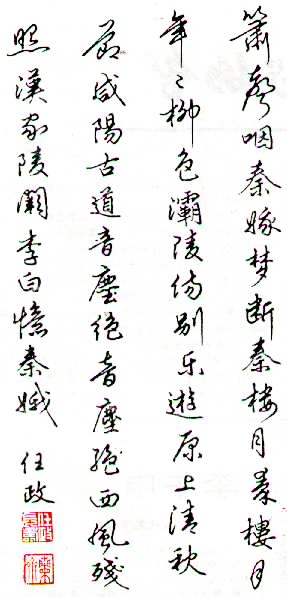 箫声咽秦娥梦断秦楼月秦楼月
年々柳色灞陵伤别乐游原上清秋
节咸阳古道音尘绝音尘绝西风残
照汉家陵阙李白忆秦娥 任政